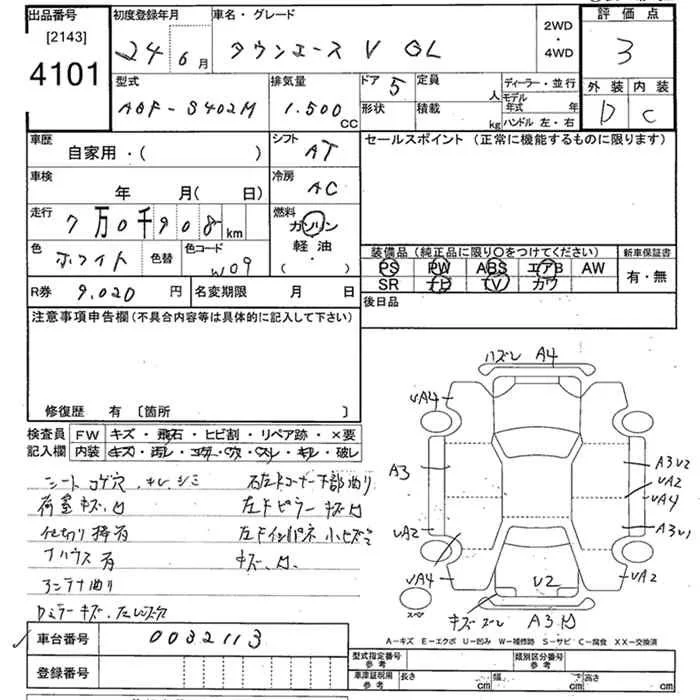 出品番号
[2143]
4101
初度登録年月
24年 6月
車名・グレード
タウンエース V GL
2WD
・
4WD
評価点
3
外装 内装
D C
型式
ABF-S402M
排気量
1.500 CC
ドア 5
定員 人
形状
積載 kg
ディーラー・並行
モデル年式 年
ハンドル 左・右
車歴
自家用・( )
シフト
AT
セールスポイント (正常に機能するものに限ります)
車検
年 月( 日)
冷房
AC
走行
7万0千908 km
燃料
ガソリン
軽油
( ・ )
色
ホワイト
色替
色コード
W09
装備品 (純正品に限り〇をつけてください)
PS PW ABS エアB AW
SR ナビ TV カワ
新車保証書
有・無
R券 9,020 円
名変期限 月 日
後日品
注意事項申告欄(不具合内容等は具体的に記入して下さい)
修復歴 有 〔箇所 〕
検査員 FW キズ・飛石・ヒビ割・リペア跡・×要
記入欄 内装 キズ・汚レ・コゲ・穴・スレ・キレ・破レ
シートコゲ穴、キレ、シミ
荷室キズ、凹
仕切り棒有
アンテナ曲り
Dミラーキズ、
右左ドコーナー下部曲り
左ドピラーキズ凹
キズ、凹、
ハズレ A4
VA4
A3
VA2
VA4
A3 V2
VA2
VA4
A3 V1
VA2
V2
キズ ズレ A3 凹
スペ
A-キズ E-エクボ U-凹み W-補修跡 S-サビ C-腐食 XX-交換済
車台番号 0032113
登録番号
型式指定番号
参考
類別区分番号
参考
車庫証明用
参考
長さ cm
幅 cm
高さ cm